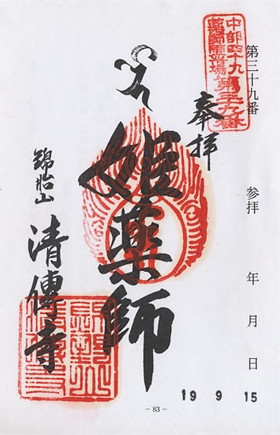 第三十九番
中部四十九
薬師霊場第三十九番
奉拝
姫薬師
錦鶏山 清傳寺
年 月 日
19 9 15
- 83 -